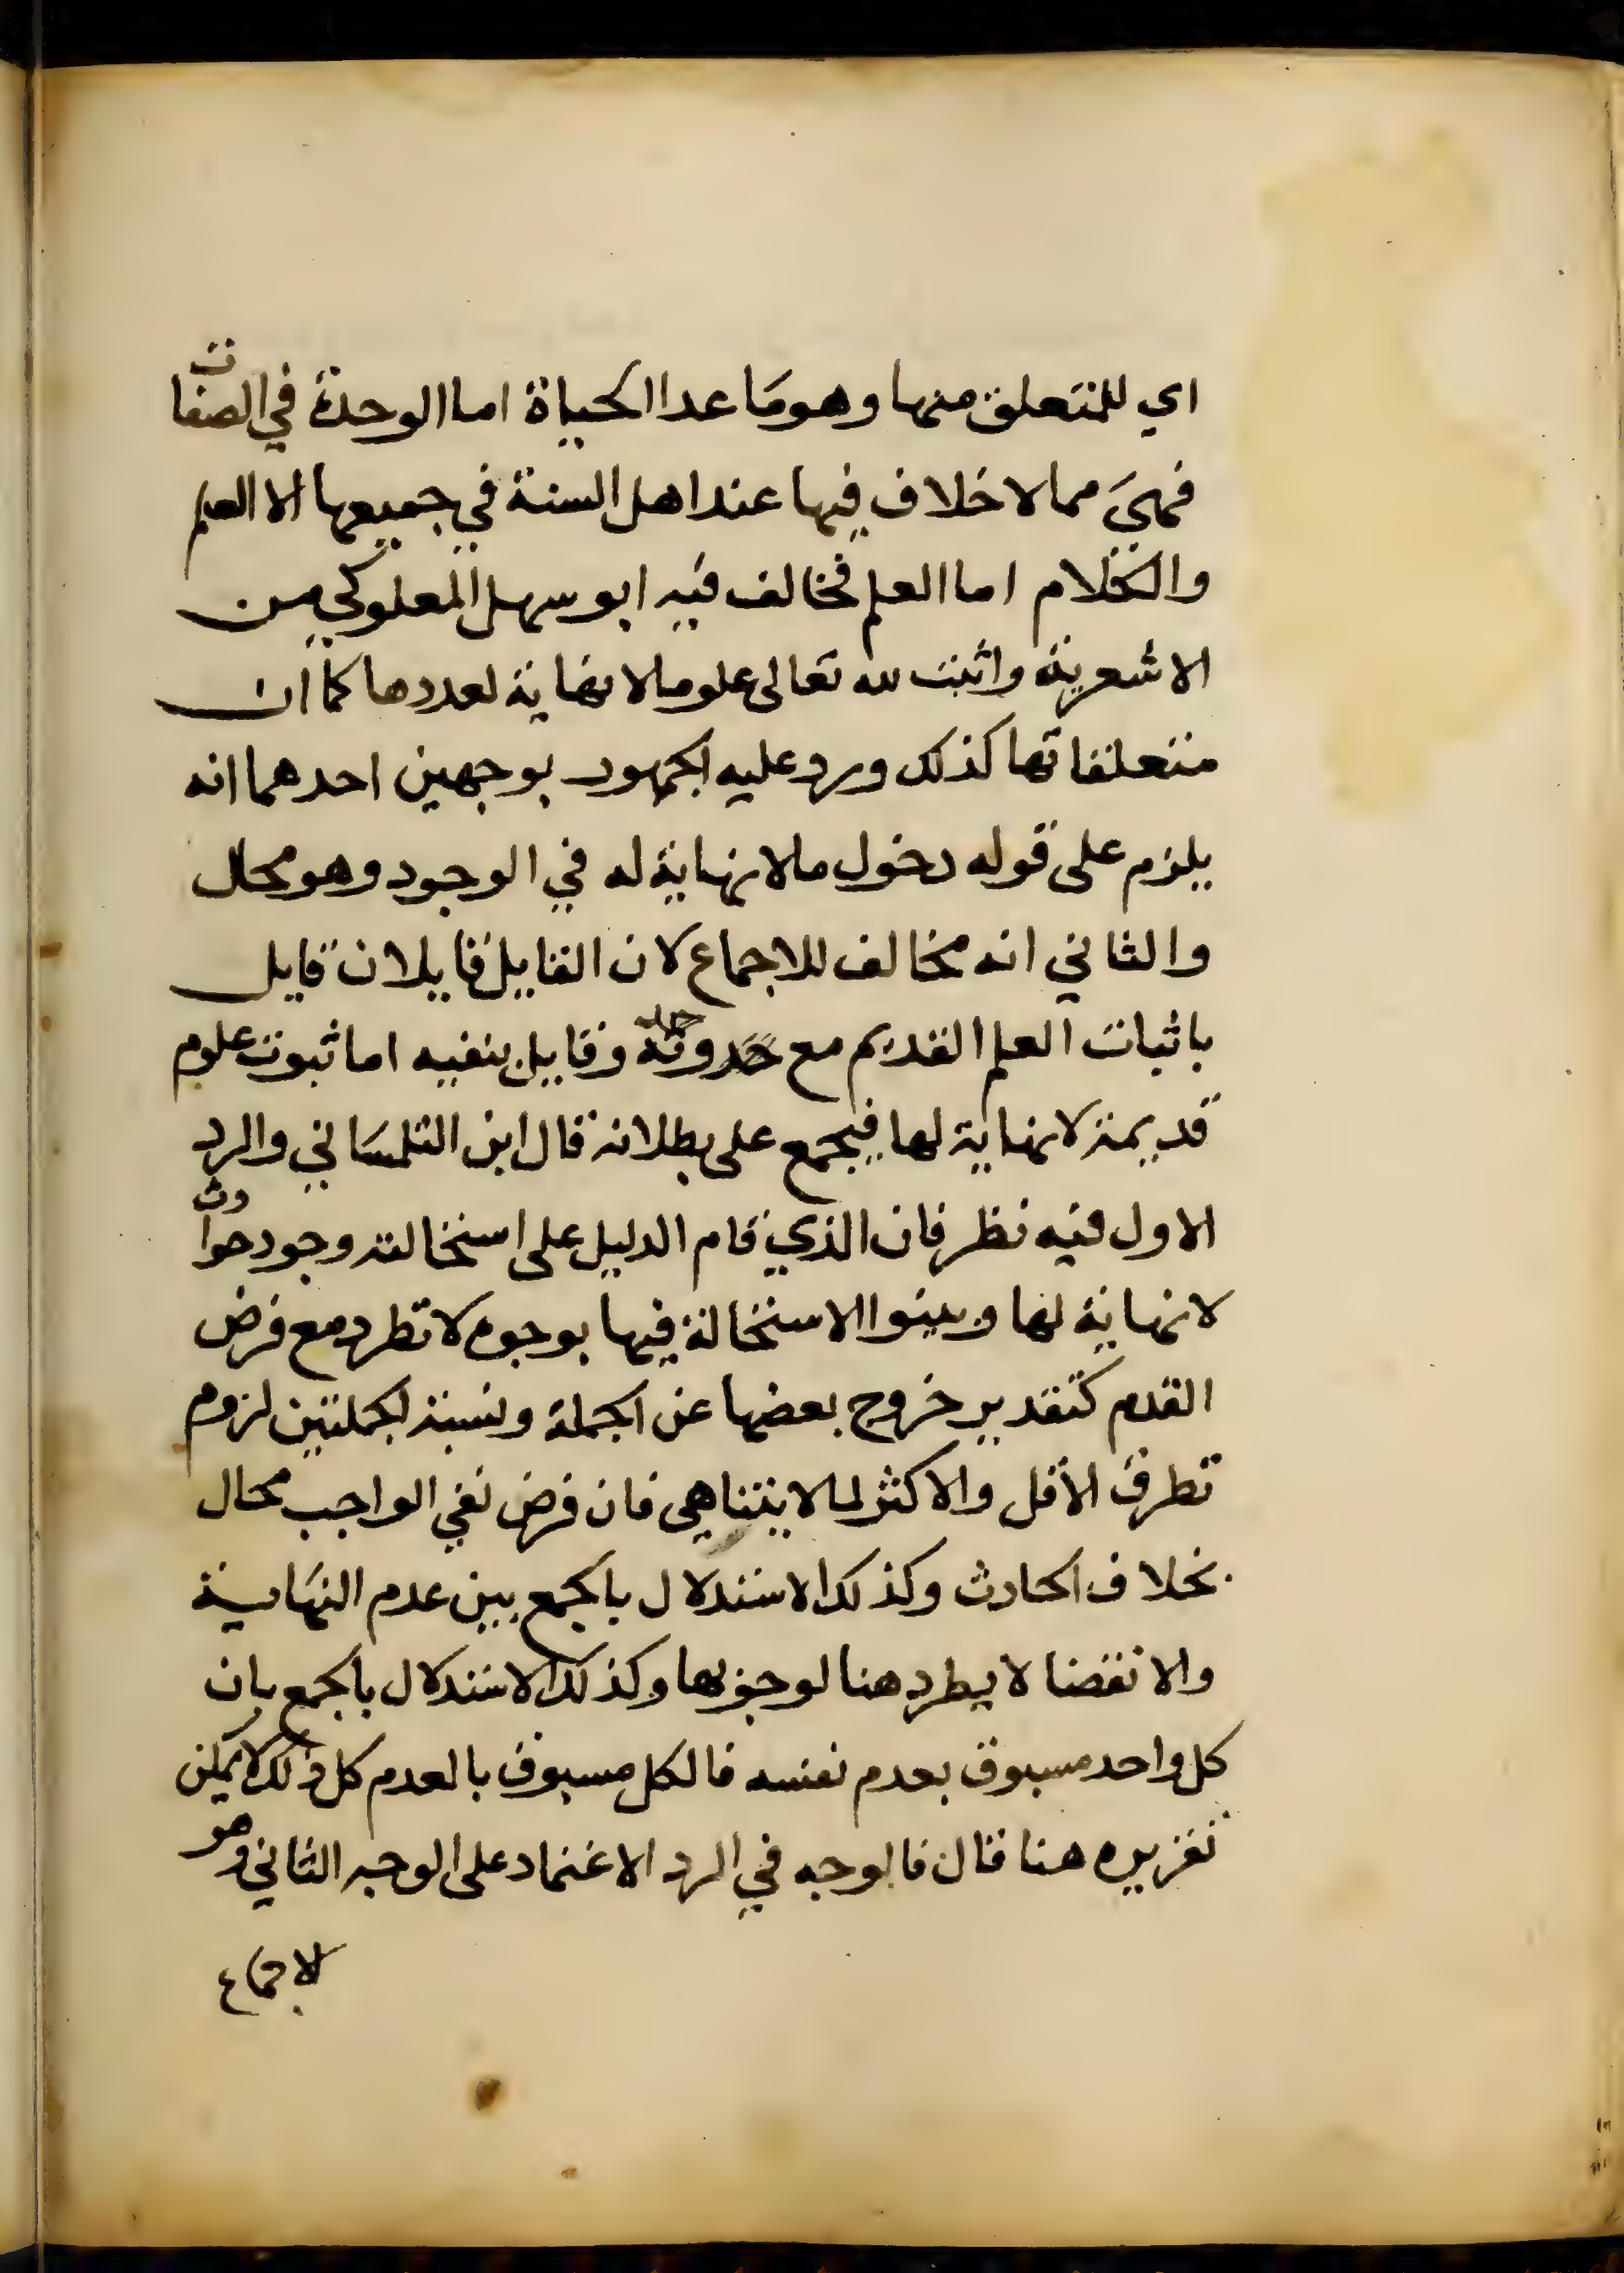 اي للمتعلق منها وهو ما عدا الحياة اما الوحدة في الصفات
فهي مما لا خلاف فيها عند اهل السنة في جميعها الا العلم
والكلام اما العلم فخالف فيه ابو سهل المعلوكي من
الاشعرية واثبت لله تعالى علوما لا نهاية لعددها كما ان
متعلقاتها كذلك ورد عليه الجمهور بوجهين احدهما انه
يلزم على قوله دخول ما لا نهاية له في الوجود وهو محال
والثاني انه مخالف للاجماع لان القايل قايلان قايل
باثبات العلم القديم مع وقايل بنفيه اما ثبوت علوم
قديمة لا نهاية لها فيجمع على بطلانه قال ابن التلمساني والرد
الاول فيه نظر فان الذي قام الدليل على استحالته وجود حوادث
لا نهاية لها وبينوا الاستحالة فيها بوجوه لا تطرد مع فرض
القدم كتقدير خروج بعضها عن الجملة ونسبة الجملتين لزوم
تطرق الاقل والاكثر لما لا يتناهى فان فرض نفي الواجب محال
بخلاف الحادث وكذلك الاستدلال بالجمع بين عدم النهاية
والانقضا لا يطرد هنا لوجوبها وكذلك الاستدلال بالجمع بان
كل واحد مسبوق بعدم نفسه فالكل مسبوق بالعدم كل ذلك لا يمكن
تقريره هنا قال فالوجه في الرد الاعتماد على الوجه الثاني وهو
الاجماع